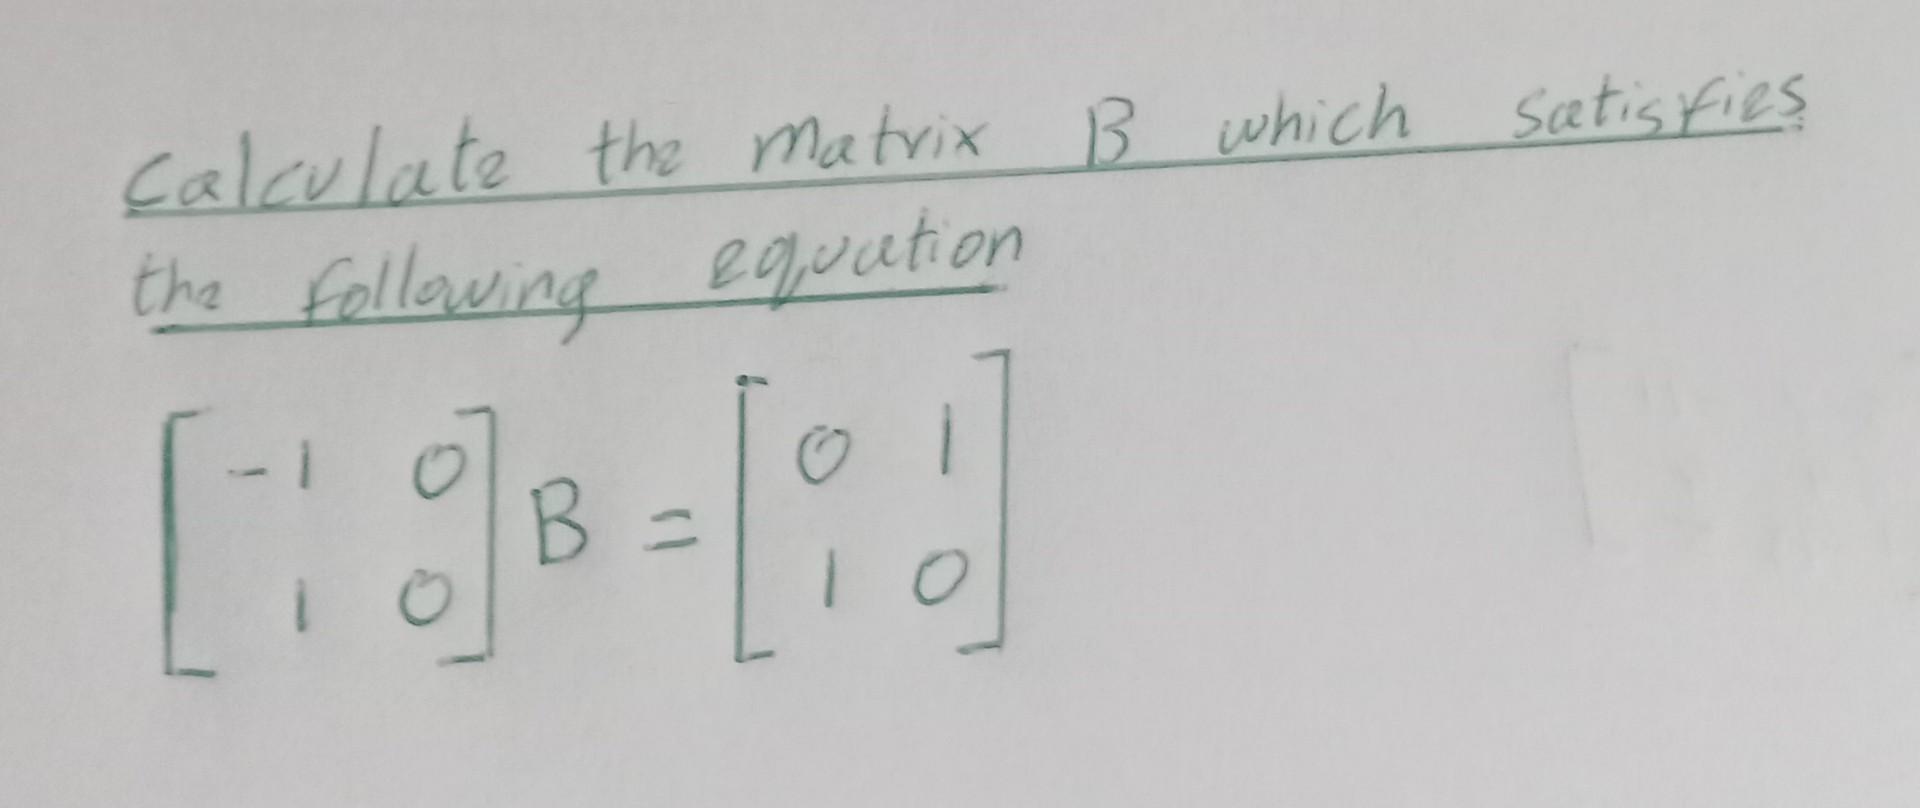 Calculate the matrix B which satisfies
the following equation
[ -1 0 ] B = [ 0 1 ]
[ 1 0 ] [ 1 0 ]